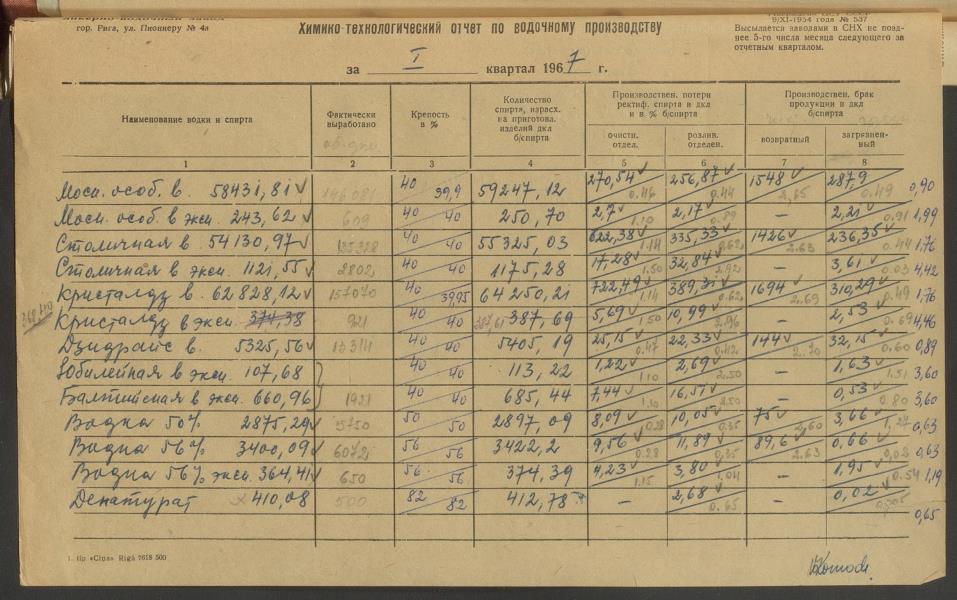 гор. Рига, ул. Пионеру № 4а
Химико-технологический отчет по водочному производству
за I квартал 1967 г.
9/XI-1954 года № 537
Высылается заводами в СНХ не позднее 5-го числа месяца следующего за отчетным кварталом.
Наименование водки и спирта
Фактически выработано
Крепость в %
Количество спирта, израсх. на приготовл. изделий дкл б/спирта
Производствен. потери ректиф. спирта в дкл и в % б/спирта
очистн. отдел.
розлив. отделен.
Производствен. брак продукции в дкл б/спирта
возвратный
загрязненный
1 2 3 4 5 6 7 8
Моск. особ. в. 58431,81 40 39,9 59247,12 270,54 0.46 256,87 0.44 1548 2,65 287,9 0.49 0,90
Моск. особ. в экси. 243,62 609 40 40 250,70 2,7 1.10 2,17 0.89 — 2,21 0.91 1,99
Столичная в. 54130,97 135328 40 40 55325,03 622,38 1.14 335,33 0.62 1426 2.63 236,35 0.44 1,76
Столичная в экси. 1121,55 2802 40 40 1175,28 17,28 1.50 32,84 2.92 — 3,61 0.03 4,42
Кристалду в. 62828,12 157070 40 39,95 64250,21 722,49 1.14 389,31 0.62 1694 2.69 310,29 0.49 1,76
Кристалду в экси. 374,38 921 40 40 387,69 5,69 1.50 10,99 2.96 — 2,53 0.69 4,46
Дзидрайс в. 5325,56 13314 40 40 5405,19 25,15 0.47 22,33 0.42 144 2.70 32,15 0.60 0,89
Юбилейная в экси. 107,68 40 40 113,22 1,22 1.10 2,69 2.50 — 1,63 1.51 3,60
Балтийская в экси. 660,96 1921 40 40 685,44 7,44 1.10 16,57 2.50 — 0,53 0.80 3,60
Водка 50% 2875,29 5750 50 50 2897,09 8,09 0.28 10,05 0.35 75 2,60 3,66 1,27 0,63
Водка 56% 3400,09 6072 56 56 3422,2 9,56 0.28 11,89 0.35 89,6 2.63 0,66 0,02 0,63
Водка 56% экси. 364,41 650 56 56 374,39 4,23 1.15 3,80 1.04 — 1,95 0.54 1,19
Денатурат 410,08 500 82 82 412,78 — 2,68 0.65 — 0,02 0,65
1. tip «Cīņa» Rīgā 7618 500